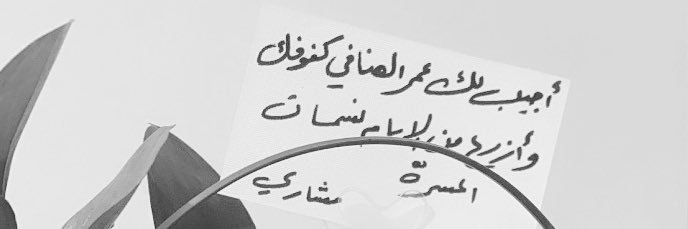 أجيب لك عمر الهنا في كفوفك
وأزرها من الايام نسمات
المسرة مشاري